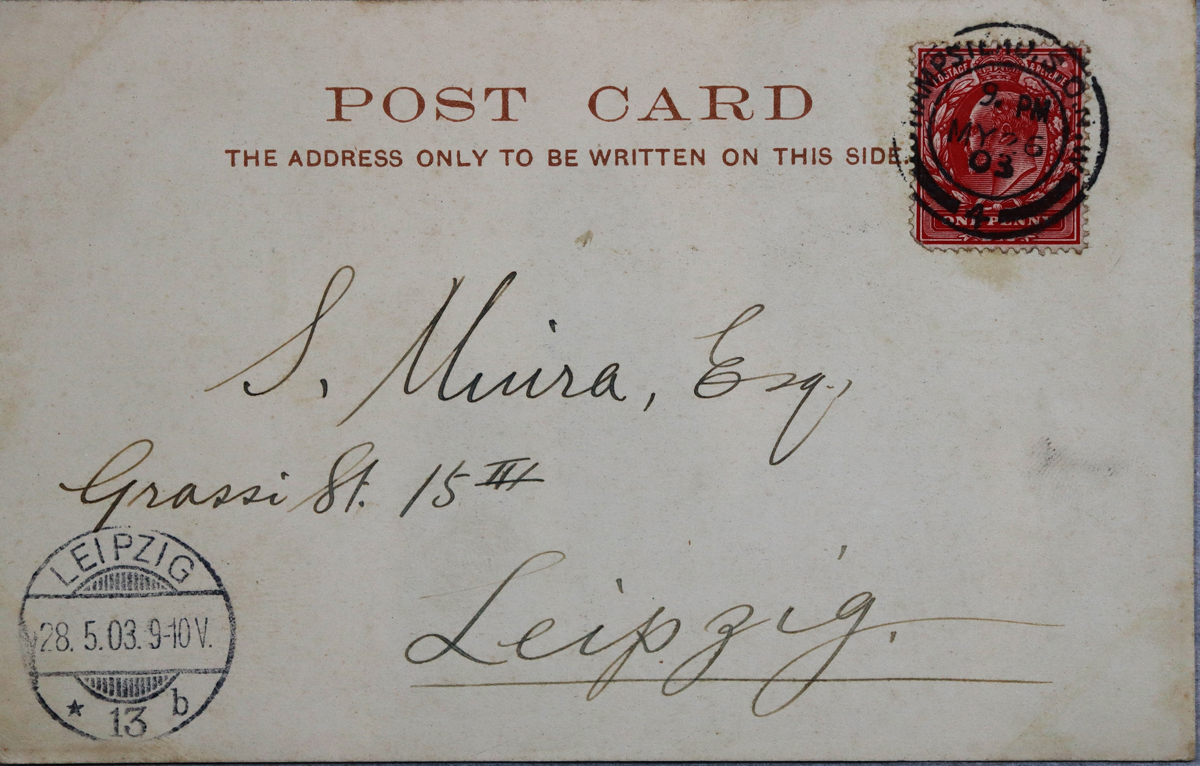 POST CARD
THE ADDRESS ONLY TO BE WRITTEN ON THIS SIDE.
9. PM
MY 26
03
4
ONE PENNY
S. Miura, Esq.,
Grassi St. 15 III
Leipzig.
LEIPZIG
28. 5. 03. 9-10 V.
* 13 b